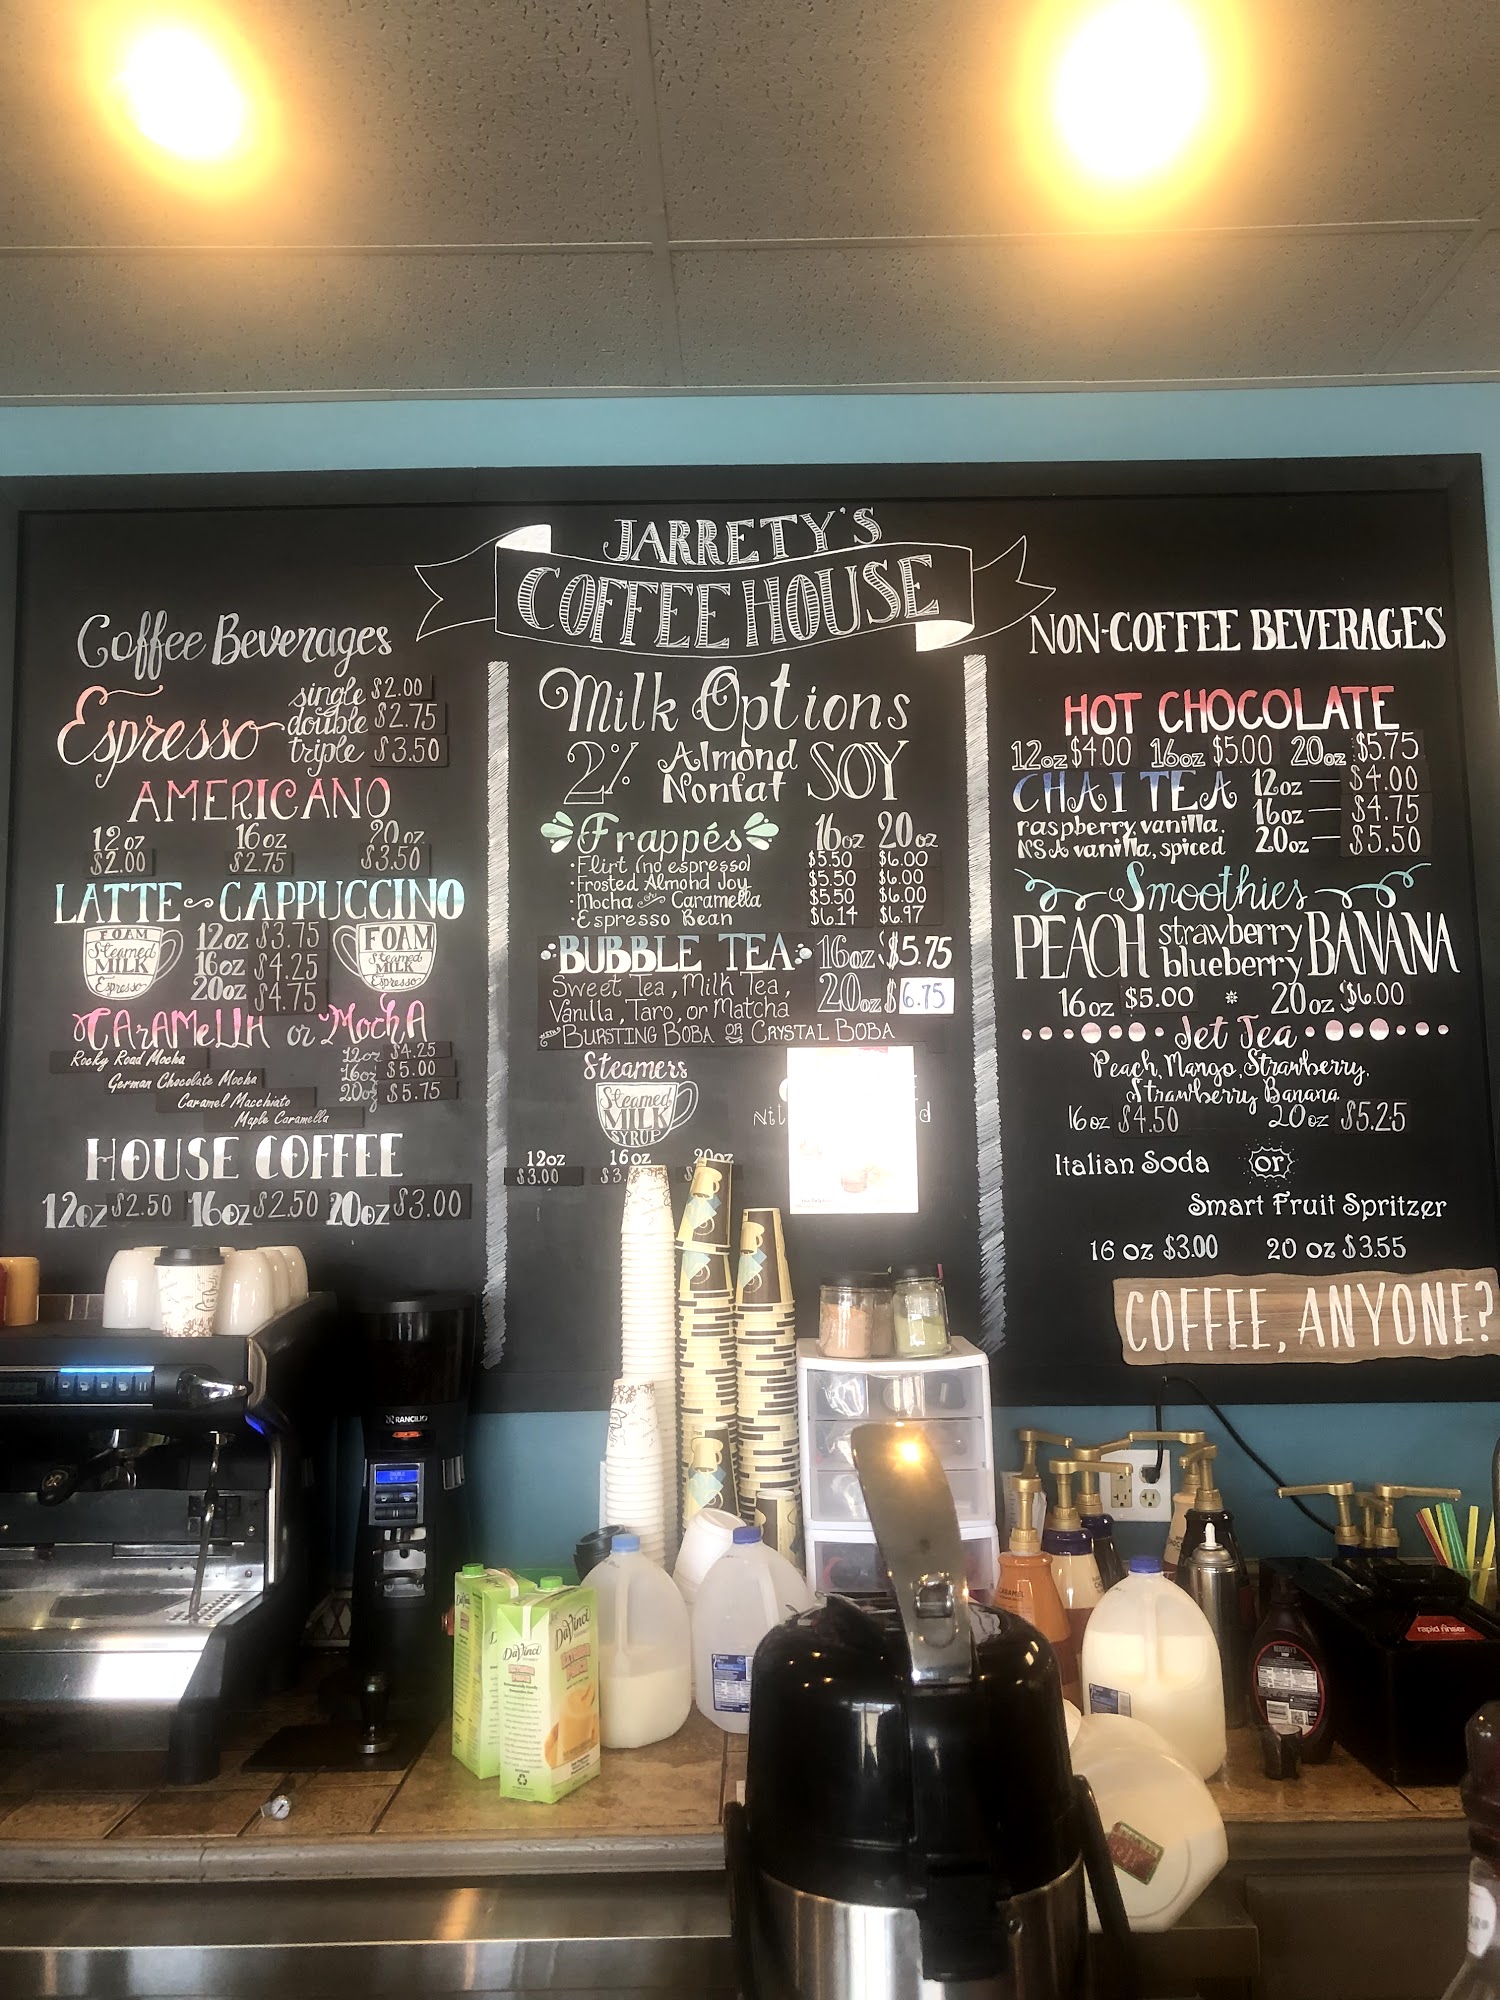 JARRETY'S
COFFEE HOUSE
Coffee Beverages
Espresso
single $2.00
double $2.75
triple $3.50
AMERICANO
12 oz 16 oz 20 oz
$2.00 $2.75 $3.50
LATTE CAPPUCCINO
FOAM
Steamed
MILK
Espresso
12oz $3.75
16oz $4.25
20oz $4.75
FOAM
Steamed
MILK
Espresso
CARAMELLA or MOCHA
Rocky Road Mocha
German Chocolate Mocha
Caramel Macchiato
Maple Caramella
12oz $4.25
16oz $5.00
20oz $5.75
HOUSE COFFEE
12oz $2.50 16oz $2.50 20oz $3.00
Milk Options
2% Almond Nonfat SOY
Frappés 16oz 20oz
• Flirt (no espresso) $5.50 $6.00
• Frosted Almond Joy $5.50 $6.00
• Mocha or Caramella $5.50 $6.00
• Espresso Bean $6.14 $6.97
BUBBLE TEA 16oz $5.75
Sweet Tea, Milk Tea,
Vanilla, Taro, or Matcha 20oz $6.75
with BURSTING BOBA OR CRYSTAL BOBA
Steamers
Steamed
MILK
SYRUP
12oz 16oz 20oz
$3.00
NON-COFFEE BEVERAGES
HOT CHOCOLATE
12oz $4.00 16oz $5.00 20oz $5.75
CHAI TEA
raspberry, vanilla,
NSA vanilla, spiced
12oz — $4.00
16oz — $4.75
20oz — $5.50
Smoothies
PEACH strawberry blueberry BANANA
16oz $5.00 * 20oz $6.00
Jet Tea
Peach, Mango, Strawberry,
Strawberry Banana
16oz $4.50 20oz $5.25
Italian Soda or
Smart Fruit Spritzer
16 oz $3.00 20 oz $3.55
COFFEE, ANYONE?
RANCILIO
DaVinci
DaVinci
CARAMEL
HERSHEY'S
rapid rinser